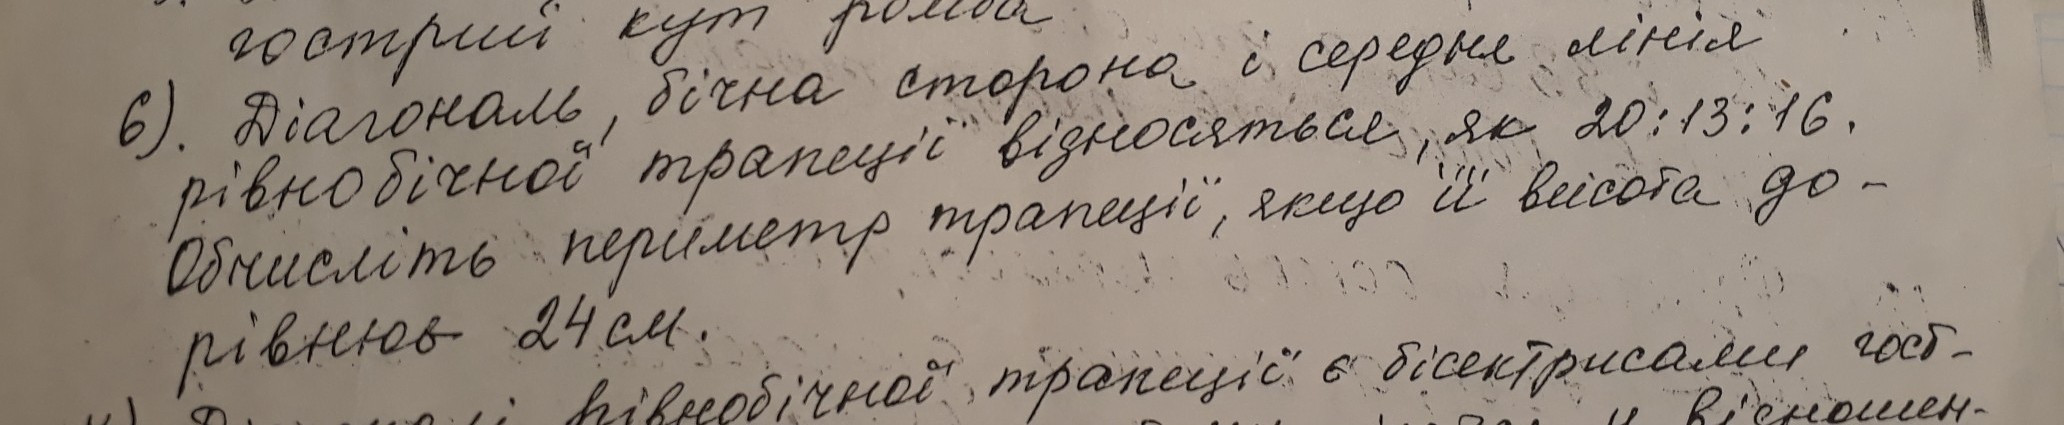 гострий кут ромба
6). Діагональ, бічна сторона і середня лінія
рівнобічної трапеції відносяться, як 20:13:16.
Обчисліть периметр трапеції, якщо її висота до-
рівнює 24 см.
рівнобічної трапеції є бісектрисами гост-
відношен-